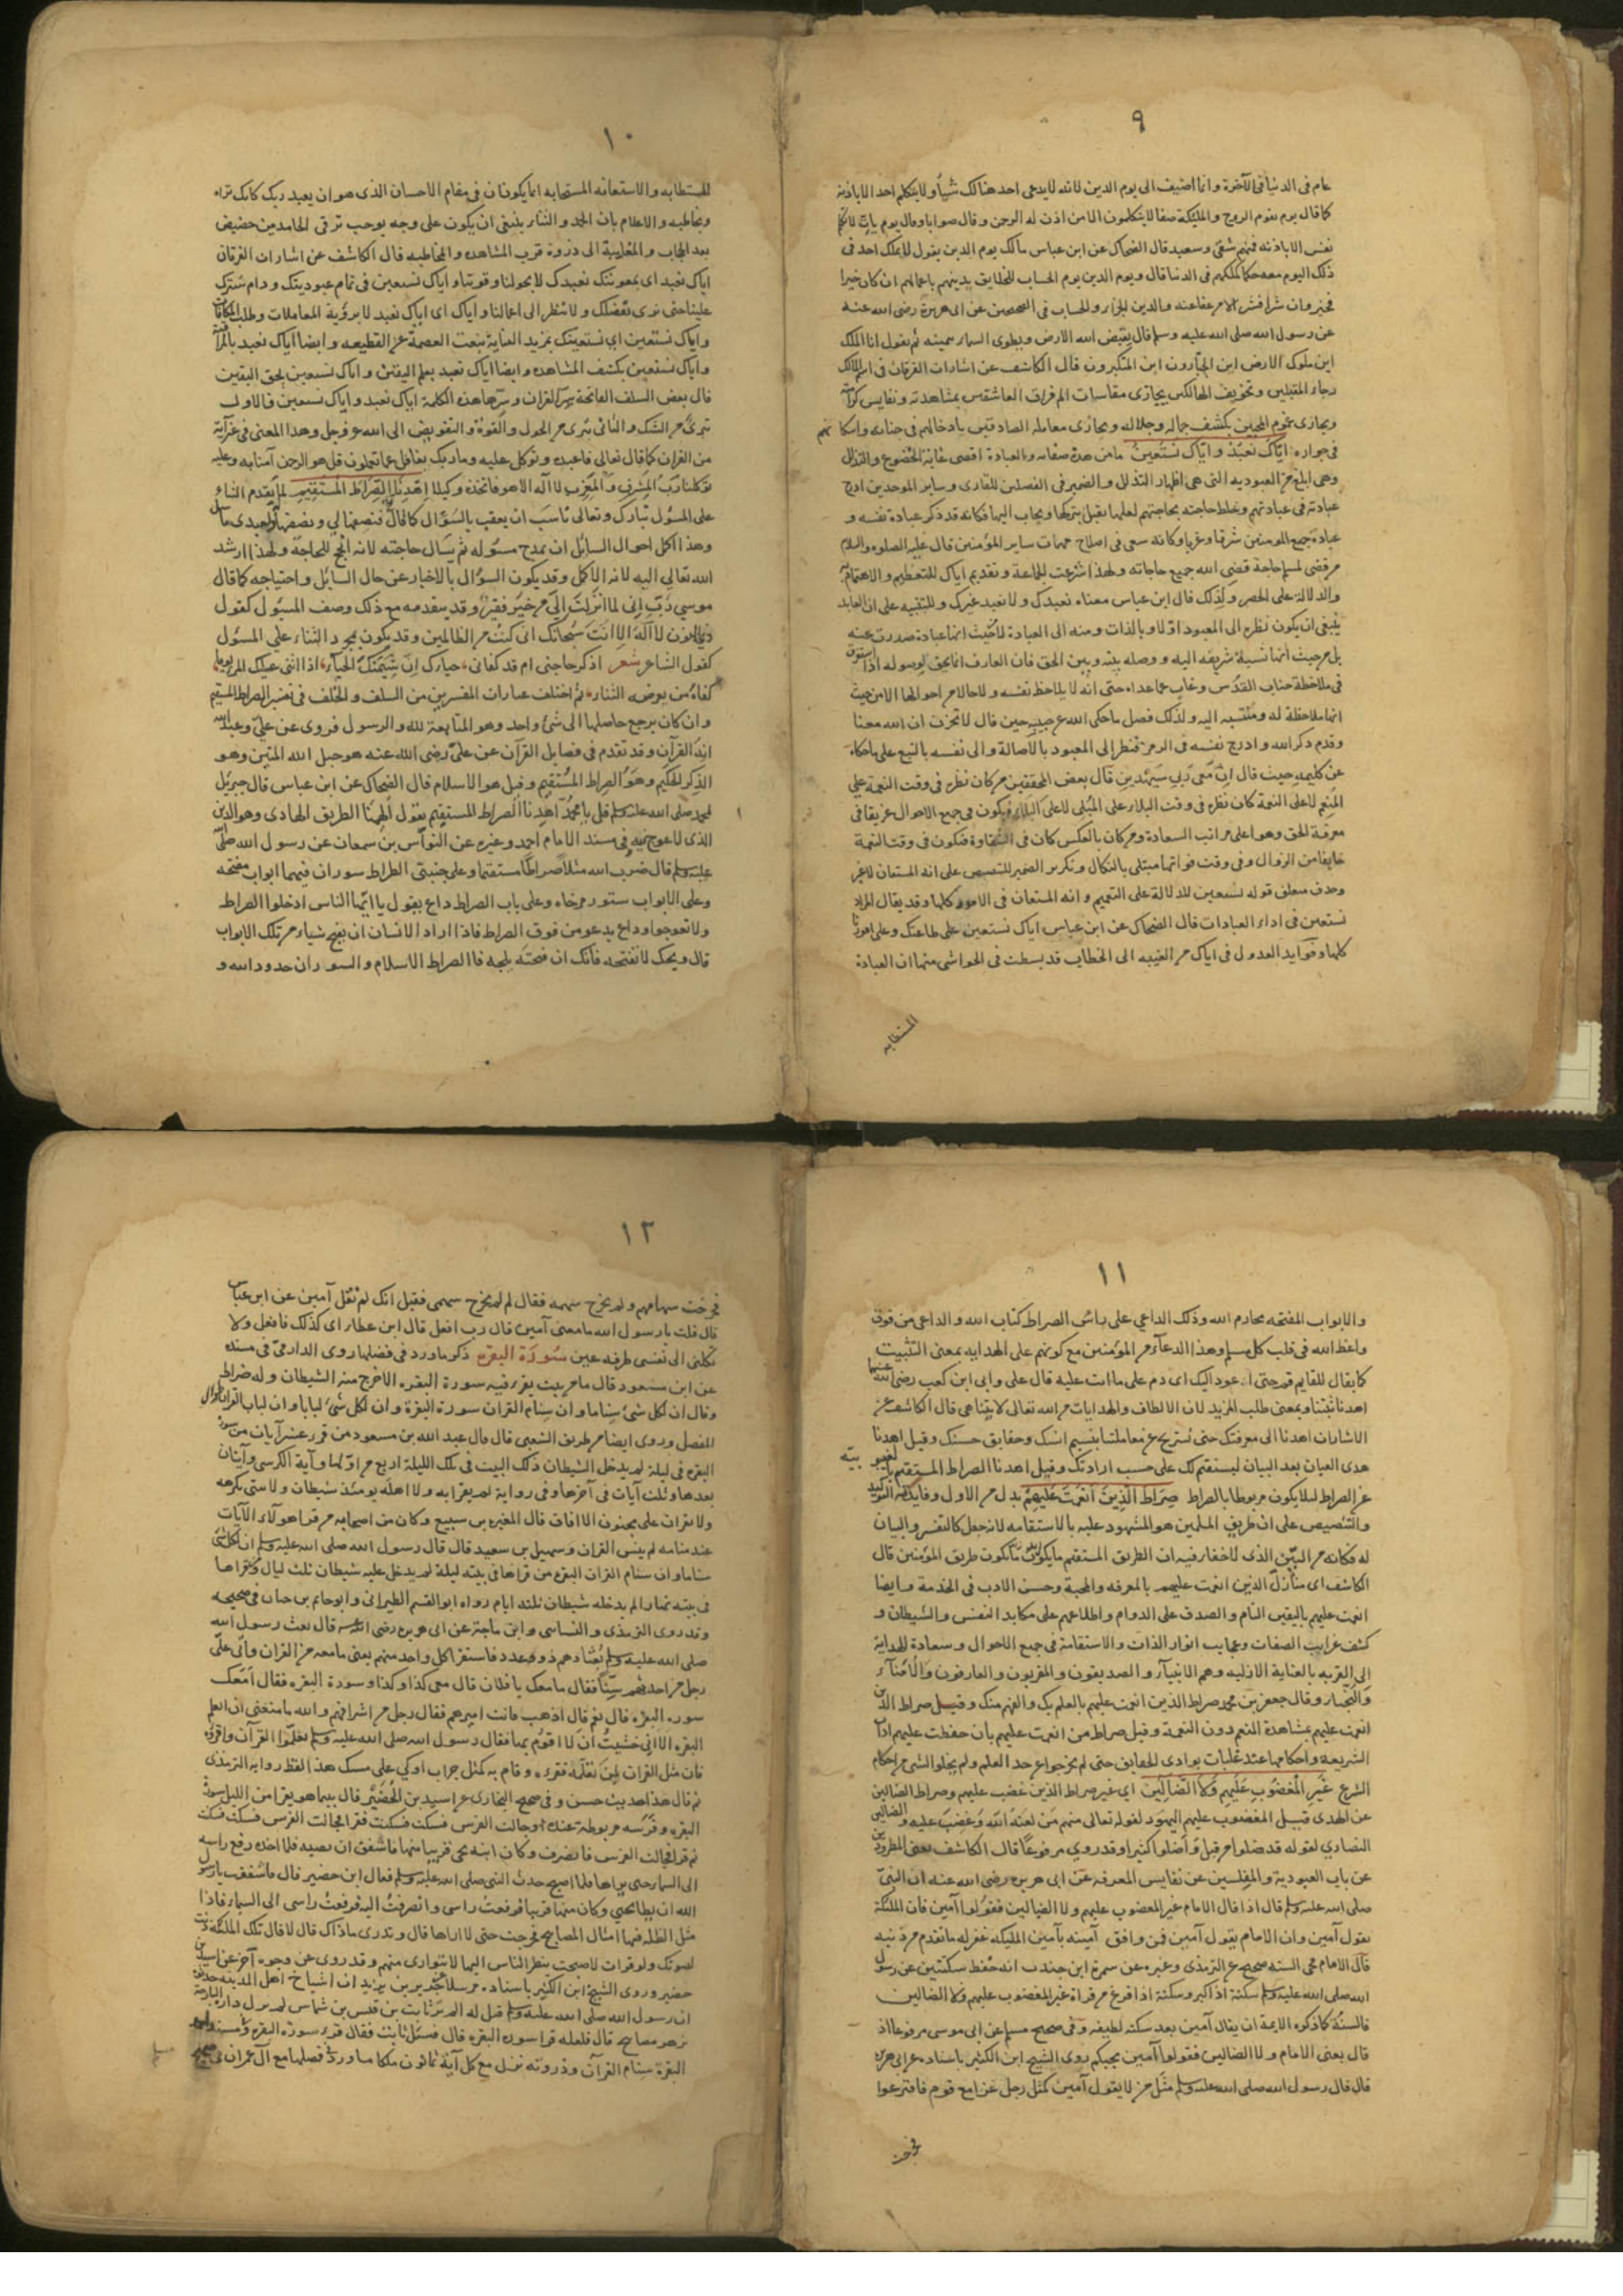 ٩
عام في الدنيا في الآخرة وانما اضيف الى يوم الدين لانه لا يدعى احد هنالك شيأ ولا يتكلم احد الا باذنه
كما قال يوم يقوم الروح والمليكة صفا لا يتكلمون الا من اذن له الرحمن وقال صوابا وقال يوم يات لا تكلم
نفس الا باذنه فمنهم شقي وسعيد قال الضحاك عن ابن عباس مالك يوم الدين يقول لا يملك احد في
ذلك اليوم معه حكما كملكهم في الدنيا قال ويوم الدين يوم الحساب للخلايق يدينهم باعمالهم ان كان خيرا
فخير وان شرا فشر الا من عفا عنه والدين الجزاء والحساب في الصحيحين عن ابي هريرة رضى الله عنه
عن رسول الله صلى الله عليه وسلم قال يقبض الله الارض ويطوى السماء بيمينه ثم يقول انا الملك
اين ملوك الارض اين الجبارون اين المتكبرون قال الكاشف عن اشارات الفرقان في
رجاء المقبلين وتخويف الهالكين يجازى مقاسات الم فراق العاشقين بمشاهدته ونفايس كرامته
ويجازى المحبين بكشف جماله وجلاله ويجازى معاملة الصادقين بادخالهم في جنانه واسكانهم
في جواره اِيّاكَ نَعْبُدُ وَاِيّاكَ نَسْتَعِينُ يا من هذه صفاته والعبادة اقصى غاية الخضوع والتذلل
وهى ابلغ من العبوديه التى هى اظهار التذلل والضمير في الفعلين للقارى وساير الموحدين ادرج
عبادته في عبادتهم وخلط حاجته بحاجتهم لعلها تقبل ببركتها ويجاب اليها فكانه قد ذكر عبادة نفسه و
عبادة جميع المومنين شرقا وغربا وكانه سعى في اصلاح مهمات ساير المؤمنين قال عليه الصلوه والسلام
من قضى لمسلم حاجة قضى الله جميع حاجاته ولهذا شرعت الجماعة وتقديم اياك للتعظيم والاهتمام به
والدلالة على الحصر ولذلك قال ابن عباس معناه نعبدك ولا نعبد غيرك وللتنبيه على ان العابد
ينبغى ان يكون نظره الى المعبود اوّلا وبالذات ومنه الى العبادة لا من حيث انها عبادة صدرت عنه
بل من حيث انها نسبة شريفه اليه ووصله بينه وبين الحق فان العارف انما يحق وصوله اذا استغرق
في ملاحظة جناب القدس وغاب عما عداه حتى انه لا يلاحظ نفسه ولا حالا من احوالها الا من حيث
انها ملاحظة له ومنتسبه اليه ولذلك فضل ما حكى الله عن حبيبه حين قال لا تحزن ان الله معنا
وقدم ذكر الله وادرج نفسه في الرمز فنظر الى المعبود بالاصالة والى نفسه بالتبع على ما حكاه
عن كليمه حيث قال ان معى ربي سيهدين قال بعض المحققين من كان نظره في وقت النعمة على
المنعم لا على النعمة كان نظره في وقت البلاء على المبلى لا على البلاء فيكون في جميع الاحوال غريقا في
معرفة الحق وهو اعلى مراتب السعادة ومن كان بالعكس كان في الشقاوة فتكون في وقت النعمة
خايفا من الزوال وفي وقت فواتها مبتلى بالنكال وتكرير الضمير للتنصيص على انه المستعان لا غير
وحذف متعلق قوله نستعين للدلالة على التعميم وانه المستعان في الامور كلها وقد يقال المراد
نستعين في اداء العبادات قال الضحاك عن ابن عباس اياك نستعين على طاعتك وعلى امورنا
كلها وفوايد العدول في اياك من الغيبه الى الخطاب قد بسطت في الحواشى منها ان العبادة
المستطابه
١٠
المستطابه والاستعانه المستجابه انما يكونان في مقام الاحسان الذى هو ان يعبد ربك كانك تراه
وتخاطبه والاعلام بان الحمد والثناء ينبغى ان يكون على وجه يوجب ترقى الحامد من حضيض
بعد الحجاب والمغايبة الى ذروة قرب المشاهده والمخاطبه قال الكاشف عن اشارات الفرقان
اياك نعبد اى بمعونتك نعبدك لا بحولنا وقوتنا واياك نستعين في تمام عبوديتك ودام سترك
علينا حتى نرى فضلك ولا ننظر الى اعمالنا واياك اى اياك نعبد لا برؤية المعاملات وطلب المكافات
واياك نستعين اى نستعينك بمزيد العناية بنعت العصمة عن القطيعه وايضا اياك نعبد بالمراقبة
واياك نستعين بكشف المشاهده وايضا اياك نعبد بعلم اليقين واياك نستعين بحق اليقين
قال بعض السلف الفاتحة سر القران وسرها هذه الكلمة اياك نعبد واياك نستعين فالاول
تبرئ من الشك والثاني تبرى من الحول والقوة والتفويض الى الله عز وجل وهذا المعنى في غير آية
من القران كما قال تعالى فاعبده وتوكل عليه وما ربك بغافل عما تعملون قل هو الرحمن آمنا به وعليه
توكلنا ربّ المشرق والمغرب لا اله الا هو فاتخذه وكيلا اِهْدِنَا الصِّرَاطَ الْمُسْتَقِيمَ لما يقدم الثناء
على المسؤل تبارك وتعالى ناسب ان يعقب بالسؤال كما قال فنصفها لي ونصفها لعبدى ما سأل
وهذا اكمل احوال السائل ان يمدح مسؤله ثم يسأل حاجته لانه انجح للحاجة ولهذا ارشد
الله تعالى اليه لانه الاكمل وقد يكون السؤال بالاخبار عن حال السائل واحتياجه كما قال
موسي رَبِّ اِنى لما انزلتَ اليّ من خير فقير وقد يتقدمه مع ذلك وصف المسؤل كقول
ذى النون لا اله الا انت سبحانك انى كنت من الظالمين وقد يكون بمجرد الثناء علي المسؤل
كقول الشاعر شعر اذكر حاجتى ام قد كفانى حياءك اِنّ شيمتك الحياء اذا اثنى عليك المرء يوما
كفاه من تعرضه الثناء ثم اختلف عبارات المفسرين من السلف والخلف في تفسير الصراط المستقيم
وان كان يرجع حاصلها الى شئ واحد وهو المتابعة لله والرسول فروى عن علي وعبد الله
انه القرآن وقد تقدم في فضايل القرآن عن عليّ رضى الله عنه هو حبل الله المتين وهو
الذكر الحكيم وهو الصراط المستقيم وقيل هو الاسلام قال الضحاك عن ابن عباس قال جبريل
لمحمد صلى الله عليه وسلم قل يا محمّد اهدنا الصراط المستقيم يقول الهمنا الطريق الهادى وهو الدين
الذى لا عوج فيه في مسند الامام احمد وغيره عن النوّاس بن سمعان عن رسول الله صلى
عليه وسلم قال ضرب الله مثلا صراطا مستقيما وعلى جنبتى الصراط سوران فيهما ابواب مفتحه
وعلى الابواب ستور مرخاه وعلى باب الصراط داع يقول يا ايها الناس ادخلوا الصراط
ولا تعوجوا وداع يدعو من فوق الصراط فاذا اراد الانسان ان يفتح شياء من تلك الابواب
قال ويحك لا تفتحه فانك ان فتحته تلجه فالصراط الاسلام والسوران حدود الله و
١١
والابواب المفتحه محارم الله وذلك الداعي على راس الصراط كتاب الله والداعى من فوق
واعظ الله في قلب كل مسلم وهذا الدعاء من المؤمنين مع كونهم على الهدايه بمعنى التثبيت
كما يقال للقايم قم حتى اعود اليك اى دم على ما انت عليه قال على وابي ابن كعب رضى الله عنهما
اهدنا ثبتنا وبمعنى طلب المزيد لان الالطاف والهدايات من الله تعالى لا يتناهى قال الكاشف عن
الاشارات اهدنا الى معرفتك حتى نستريح من معاملتنا بنسيم انسك وحقايق حسنك وقيل اهدنا
هدى العيان بعد البيان ليستقيم لك على حسب ارادتك وقيل اهدنا الصراط المستقيم
عن الصراط لئلا يكون مربوطا بالصراط صِرَاطَ الَّذِينَ اَنْعَمْتَ عَلَيْهِمْ بدل من الاول وفايدته التوكيد
والتنصيص على ان طريق المسلمين هو المشهود عليه بالاستقامه لانه جعل كالتفسير والبيان
له فكانه من البيّن الذى لا خفاء فيه ان الطريق المستقيم ما يكون طريق المؤمنين قال
الكاشف اى منازل الذين انعمت عليهم بالمعرفه والمحبة وحسن الادب في الخدمة وايضا
انعمت عليهم باليقين التام والصدق على الدوام واطلاعهم على مكايد النفس والشيطان و
كشف غرايب الصفات وعجايب انوار الذات والاستقامة في جميع الاحوال وسعادة الهداية
الى القربه بالعناية الازليه وهم الانبياء والصديقون والمقربون والعارفون والامناء
والنجباء وقال جعفر بن محمد صراط الذين انعمت عليهم بالعلم بك والفهم منك وقيل صراط الذين
انعمت عليهم بمشاهدة المنعم دون النعمة وقيل صراط من انعمت عليهم بان حفظت عليهم اداب
الشريعه واحكامها عند غلبات بوادى الحقايق حتى لم يخرجوا عن حد العلم ولم يخلوا بشئ من احكام
الشرع غَيْرِ الْمَغْضُوبِ عَلَيْهِمْ وَلَا الضَّالِّينَ اى غير صراط الذين غضب عليهم وصراط الضالين
عن الهدى قيل المغضوب عليهم اليهود لقوله تعالى منهم من لعنه الله وغضب عليه والضالين
النصارى لقوله قد ضلوا من قبل واضلوا كثيرا وقد روي مرفوعا قال الكاشف يعنى المطرودين
عن باب العبودية والمفلسين عن نفايس المعرفه عن ابى هريره رضى الله عنه ان النبيّ
صلى الله عليه وسلم قال اذا قال الامام غير المغضوب عليهم ولا الضالين فقولوا آمين فان الملئكة
يقول آمين وان الامام يقول آمين فمن وافق آمينه بآمين المليكه غفر له ما تقدم من ذنبه
قال الامام محى السنه صحيح عن الترمذى وغيره عن سمرة ابن جندب انه حفظ سكتتين عن رسول
الله صلى الله عليه وسلم سكتة اذا كبر وسكتة اذا فرغ من قراة غير المغضوب عليهم ولا الضالين
فالسنّة كما ذكره الايمة ان يقال آمين بعد سكته لطيفه وفي صحيح مسلم عن ابى موسى مرفوعا اذ
قال يعنى الامام ولا الضالين فقولوا آمين يجبكم روى الشيخ ابن الكثير باسناده عن ابى هريره
قال قال رسول الله صلى الله عليه وسلم مثل من لا يقول آمين كمثل رجل غزا مع قوم فاقترعوا
فخرجت
١٢
فخرجت سهامهم ولم يخرج سهمه فقال لم لم يخرج سهمى فقيل انك لم تقل آمين عن ابن عباس
قال قلت يا رسول الله ما معنى آمين قال رب افعل قال ابن عطاء اى كذلك فافعل ولا
تكلنى الى نفسى طرفه عين سُورَة البقره ذكر ما ورد في فضلها روى الدارميّ في مسنده
عن ابن مسعود قال ما من بيت يقرء فيه سورة البقره الا خرج منه الشيطان وله ضراط
وقال ان لكل شئ سناما وان سنام القران سورة البقرة وان لكل شئ لبابا وان لباب القران
المفصل وروى ايضا من طريق الشعبى قال قال عبد الله بن مسعود من قرء عشر آيات من سورة
البقره في ليلة لم يدخل الشيطان ذلك البيت في تلك الليلة اربع من اولها وآية الكرسى وآيتان
بعدها وثلث آيات في آخرها وفي رواية لم يقرابه ولا اهله يومئذ شيطان ولا شئ يكرهه
ولا يقران على مجنون الا افاق قال المغيره بن سبيع وكان من اصحابه من قرا هولاء الآيات
عند منامه لم ينس القران وسهيل بن سعيد قال قال رسول الله صلى الله عليه وسلم ان لكل شئ
سناما وان سنام القران البقره من قراها في بيته ليلة لم يدخل عليه شيطان ثلث ليال ومن قراها
في بيته نهارا لم يدخله شيطان ثلثه ايام رواه ابو القسم الطبرانى وابو حاتم بن حبان في صحيحه
وقد روى الترمذى والنساى وابن ماجة عن ابى هريره رضى الله عنه قال بعث رسول الله
صلى الله عليه وسلم بعثا وهم ذو عدد فاستقرا كل واحد منهم يعنى ما معه من القران فاتى على
رجل من احدثهم سنّا فقال ما معك يا فلان قال معى كذا وكذا وسورة البقره فقال امعك
سورة البقره قال نعم قال اذهب فانت اميرهم فقال رجل من اشرافهم والله ما منعنى ان اتعلم
البقره الا انى خشيت ان لا اقوم بها فقال رسول الله صلى الله عليه وسلم تعلموا القرآن واقرؤه
فان مثل القران لمن تعلّمه فقرءه وقام به كمثل جراب اوكي على مسك هذا لفظ رواية الترمذى
ثم قال هذا حديث حسن وفي صحيح البخارى عن اسيد بن الحُضَيْر قال بينما هو يقرا من الليل سورة
البقره وفرسه مربوطة عنده اذ جالت الفرس فسكت فسكنت فقرا فجالت الفرس فسكت فسكنت
ثم قرا فجالت الفرس فانصرف وكان ابنه يحيى قريبا منها فاشفق ان تصيبه فلما اخذه رفع راسه
الى السماء حتى ما يراها فلما اصبح حدث النبى صلى الله عليه وسلم فقال ابن حضير قال فاشفقت يا رسول
الله ان يطأ يحيى وكان منها قريبا فرفعت راسى وانصرفت اليه فرفعت راسى الى السماء فاذا
مثل الظله فيها امثال المصابيح فخرجت حتى لا اراها قال وتدرى ما ذاك قال لا قال تلك الملئكة دنت
لصوتك ولو قرات لاصبحت ينظر الناس اليها لا تتوارى منهم وقد روى عن وجوه آخر عن اسيد بن
حضير وروى الشيخ ابن الكثير باسناده مرسلا عن جرير بن يزيد ان اشياخ اهل المدينه حدثوه
ان رسول الله صلى الله عليه وسلم قيل له الم تر ثابت بن قيس بن شماس لم يزل داره البارحة
تزهر مصابيح قال فلعله قرا سورة البقره قال فسئل ثابت فقال قرات سورة البقره
البقرة سنام القرآن وذروته نزل مع كل آية ثمانون ملكا ما ورد في فضلها مع آل عمران في صحيح